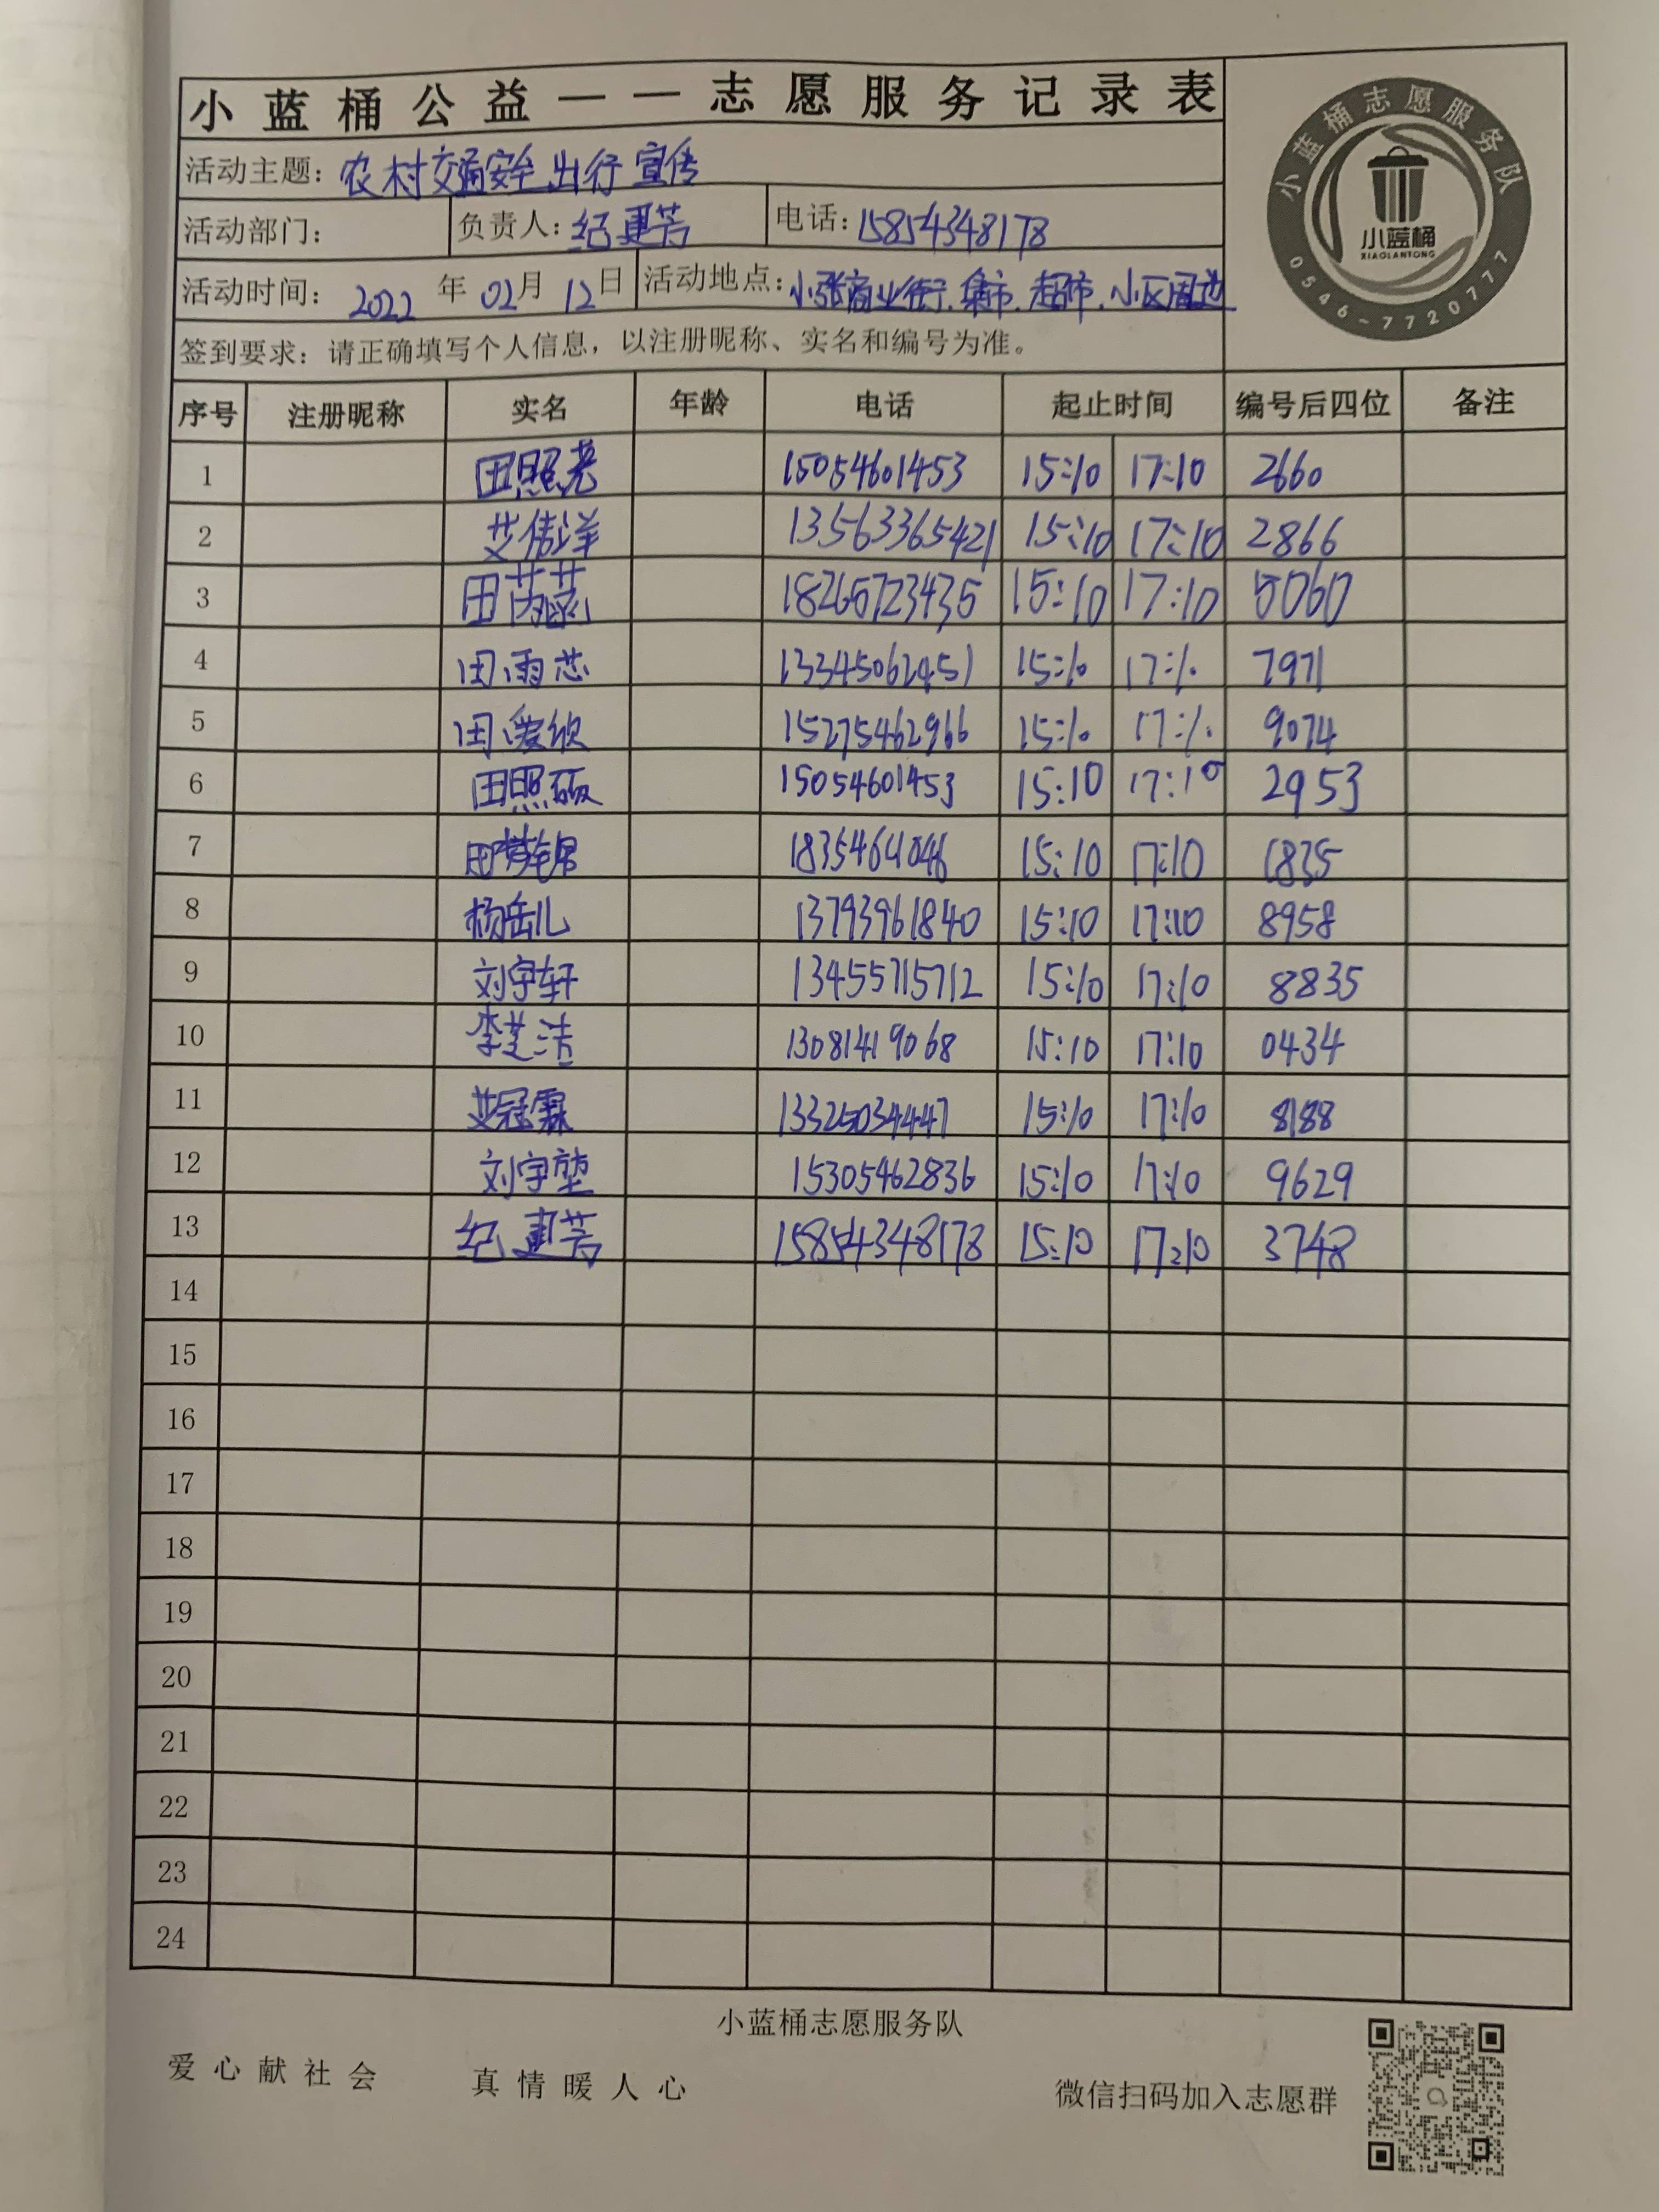 小蓝桶公益——志愿服务记录表
小蓝桶志愿服务队
小蓝桶
XIAOLANTONG
0546-7720777
活动主题：农村交通安全出行宣传
活动部门： 负责人：纪建芳 电话：15854348178
活动时间：2022年02月12日 活动地点：小张商业街、集市、超市、小区周边
签到要求：请正确填写个人信息，以注册昵称、实名和编号为准。
序号 注册昵称 实名 年龄 电话 起止时间 编号后四位 备注
1 田照尧 15054601453 15:10 17:10 2660
2 艾倩洋 13563365421 15:10 17:10 2866
3 田芮菡 18265723435 15:10 17:10 5060
4 田雨芯 15:10 17:10 7971
5 田爱欣 15275462966 15:10 17:10 9074
6 田照硕 15054601453 15:10 17:10 2953
7 田 15:10 17:10 1835
8 杨岳儿 13793961840 15:10 17:10 8958
9 刘宇轩 13455715712 15:10 17:10 8835
10 李芝洁 13081419068 15:10 17:10 0434
11 艾冠霖 15:10 17:10 8188
12 刘宇堃 15305462836 15:10 17:10 9629
13 纪建芳 15854348178 15:10 17:10 3748
14
15
16
17
18
19
20
21
22
23
24
小蓝桶志愿服务队
爱心献社会 真情暖人心 微信扫码加入志愿群